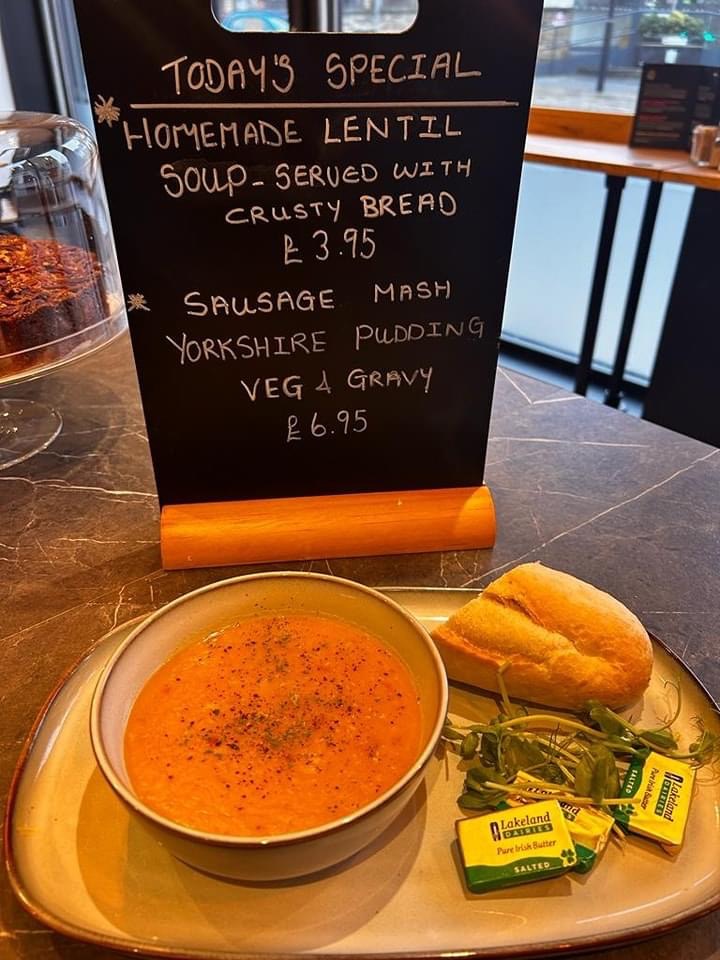 TODAY'S SPECIAL
* HOMEMADE LENTIL
SOUP - SERVED WITH
CRUSTY BREAD
£3.95
* SAUSAGE MASH
YORKSHIRE PUDDING
VEG & GRAVY
£6.95
Lakeland
DAIRIES
Pure Irish Butter
SALTED
Lakeland
DAIRIES
Pure Irish Butter
SALTED